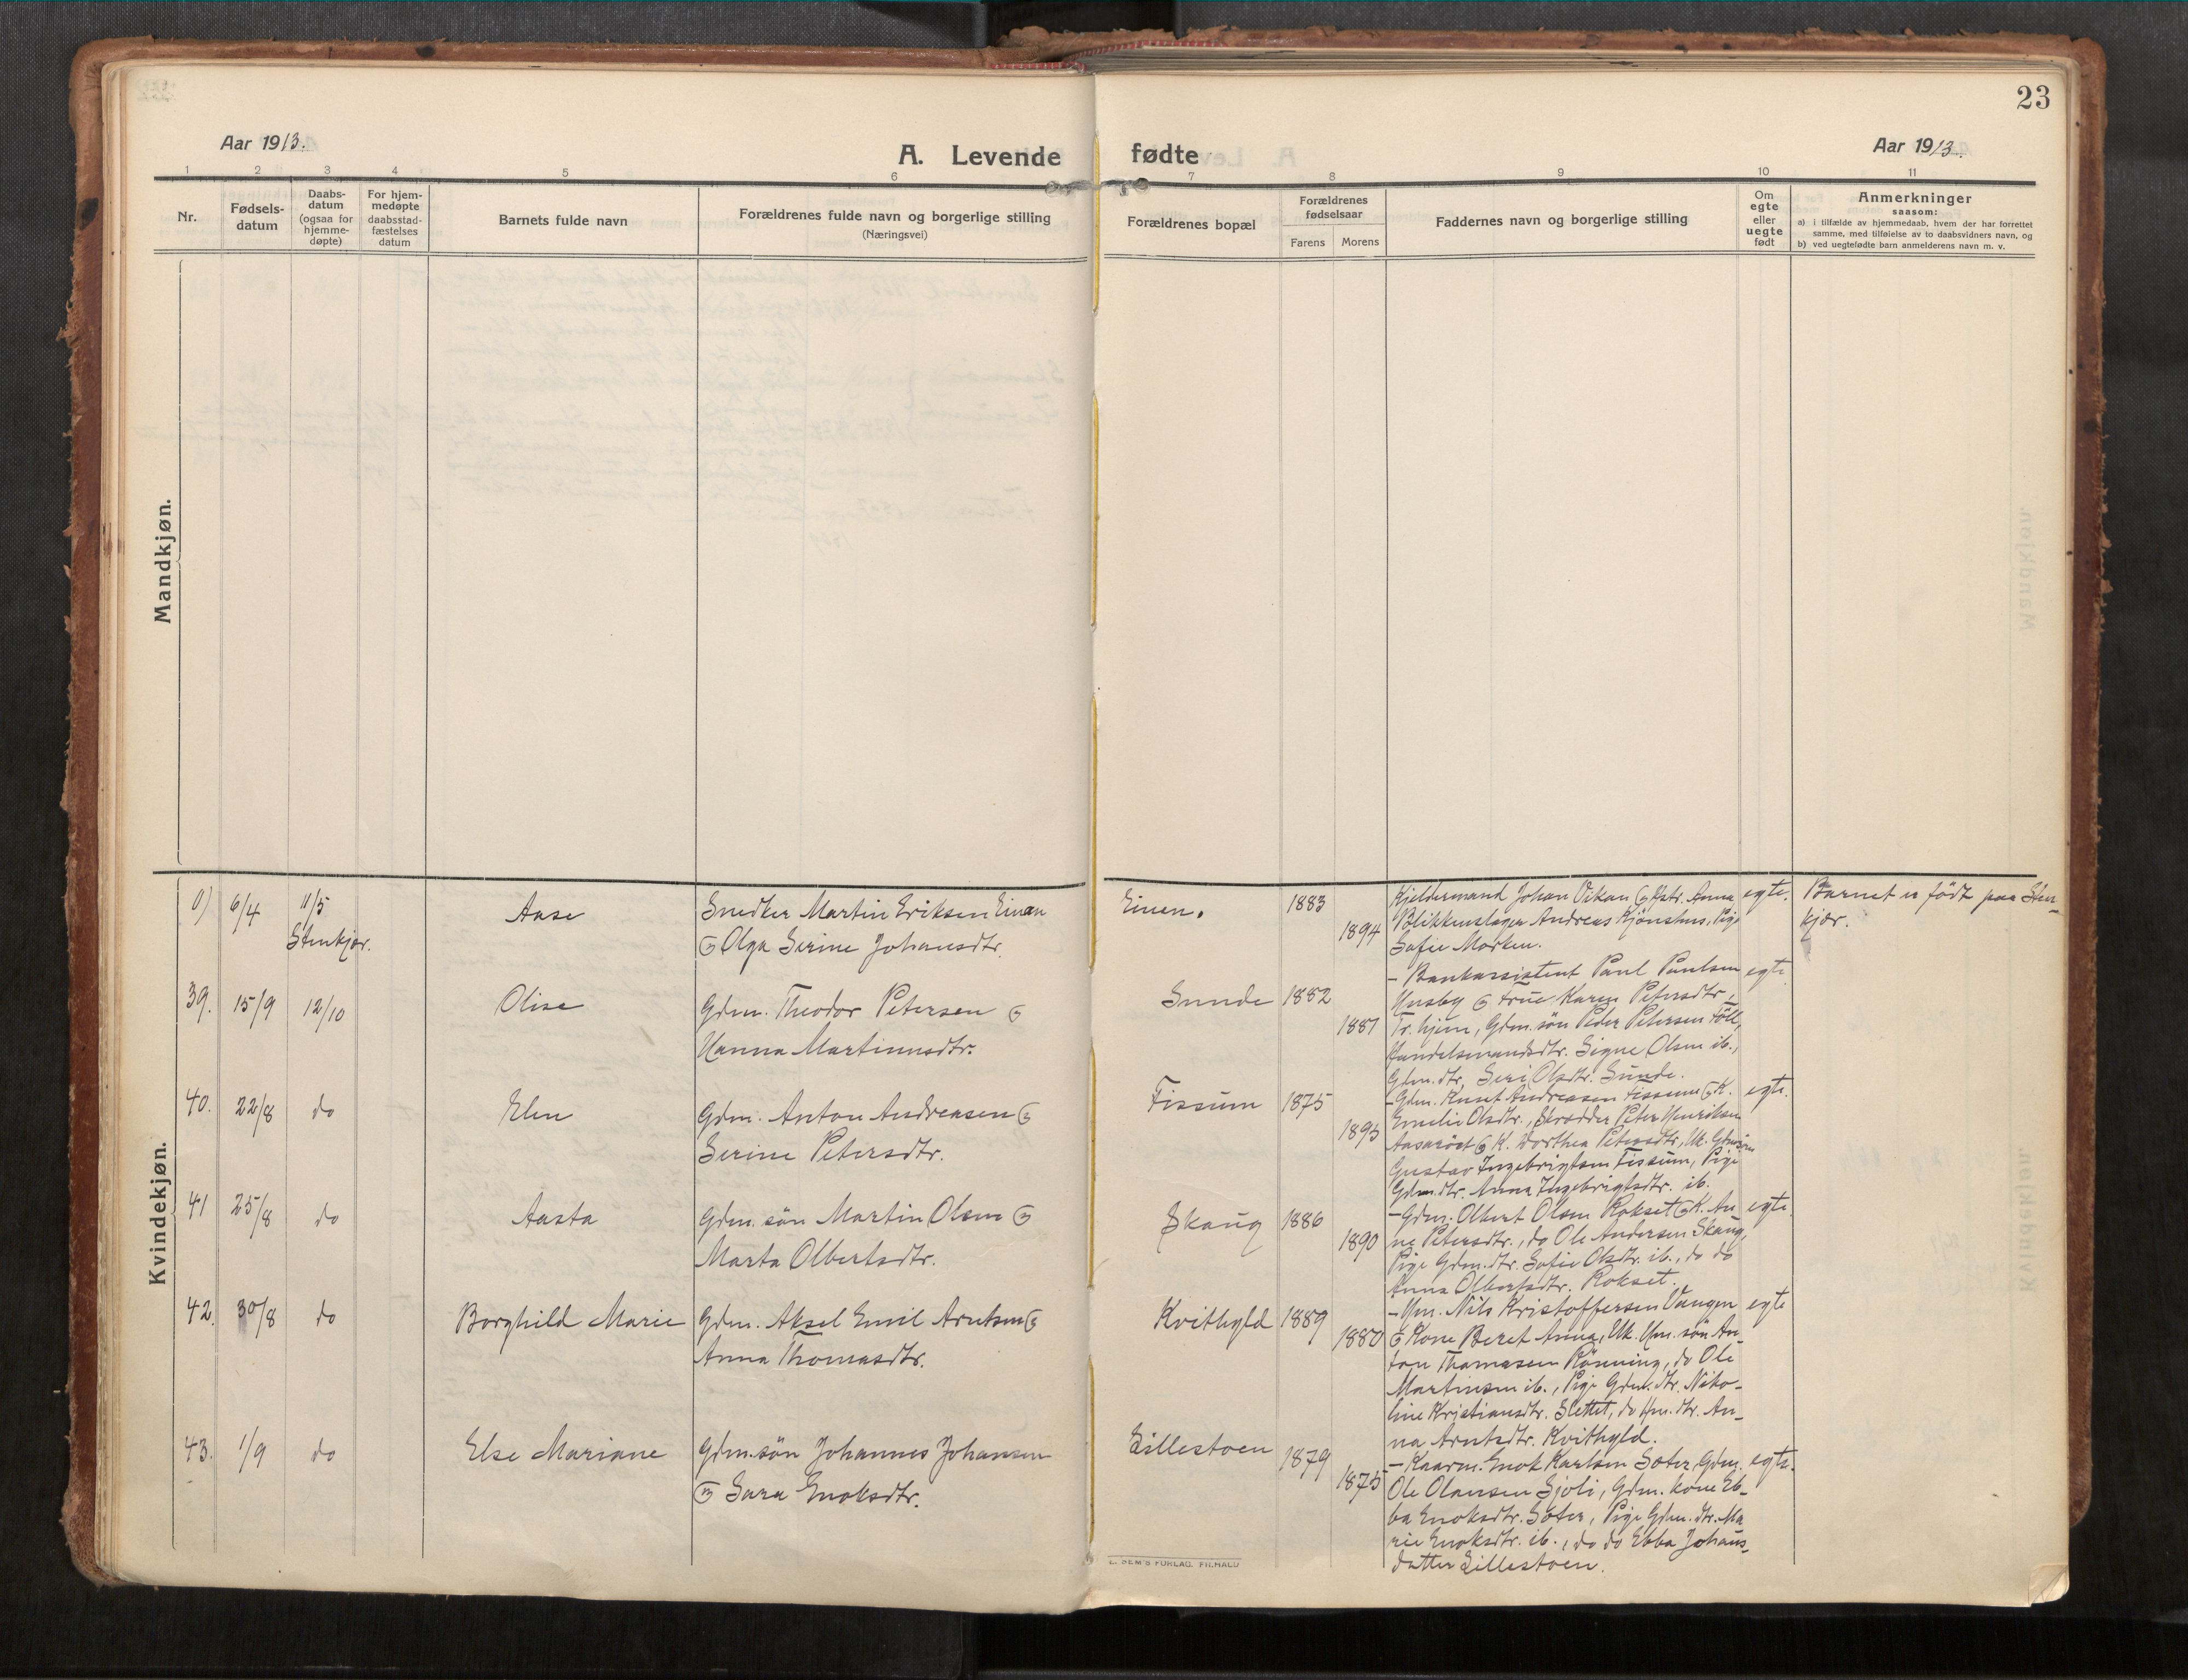 23
Aar 1913.
A. Levende fødte
Aar 1913.
1 2 3 4 5 6 7 8 9 10 11
Nr.
Fødsels-
datum
Daabs-
datum
(ogsaa for
hjemme-
døpte)
For hjem-
medøpte
daabsstad-
fæstelses
datum
Barnets fulde navn
Forældrenes fulde navn og borgerlige stilling
(Næringsvei)
Forældrenes bopæl
Forældrenes
fødselsaar
Farens Morens
Faddernes navn og borgerlige stilling
Om
egte
eller
uegte
født
Anmerkninger
saasom:
a) i tilfælde av hjemmedaab, hvem der har forrettet
samme, med tilføielse av to daabsvidners navn, og
b) ved uegtefødte barn anmelderens navn m. v.
Mandkjøn.
Kvindekjøn.
0) 6/4 11/5
Stenkjær.
Aase
Snedker Martin Eriksen Einan
og Olga Serine Johansdtr.
Einen.
1883
1894
Kjeldermand Johan Vikan og Hstr. Anna
Blikkenslager Andreas Kjönshus, Pige
Sofie Morken.
egte.
Barnet er født paa Sten-
kjær.
39. 15/9 12/10
Olise
Gdm. Theodor Petersen og
Hanna Martinusdtr.
Sunde
1882
1887
- Bankassistent Paul Paulsen
Husby og frue Karen Petersdtr,
Tr.hjem, Gdm. søn Peder Petersen Föll,
Handelsmandsdtr. Signe Olsen ib.,
Gdm. dtr. Seri Olsdtr. Sunde.
egte
40. 22/8 do
Elen
Gdm. Anton Andreasen og
Serine Petersdtr.
Fissum
1875
1895
- Gdm. Knut Andreasen Fissum og K.
Emelie Olsdtr., Skrædder Peter Henriksen
Aasaröet og K. Dorthea Petersdtr, Uk. Gdmsön
Gustav Ingebrigtsen Fissum, Pige
Gdm. dtr. Anna Ingebrigtsdtr. ib.
egte.
41 25/8 do
Aasta
Gdm. sön Martin Olsen og
Marta Olbertsdtr.
Skaug
1886
1890
- Gdm. Olbert Olsen Rokset og K. An
ne Petersdtr., do Ole Andersen Skaug,
Pige Gdm. dtr. Sofie Olsdtr. ib., do do
Anna Olbertsdtr. Rokset.
egte.
42. 30/8 do
Borghild Marie
Gdm. Aksel Emil Arntsen og
Anna Thomasdtr.
Kvithyld
1889
1880
- Hm. Nils Kristoffersen Vangen
og Kone Beret Anna, Uk. Hm. sön An-
ton Thomasen Rönning, do Ole
Martinsen ib., Pige Gdm. dtr. Niko-
line Kristiansdtr. Slettet, do Hm. dtr. An-
na Arntsdtr. Kvithyld.
egte
43. 1/9 do
Else Mariane
Gdm. sön Johannes Johansen
og Sara Enoksdtr.
Lillestoen
1879
1875
- Kaarm. Enok Karlsen Sæter, Gdm.
Ole Olausen Sjoli, Gdm. kone Eb-
ba Enoksdtr. Sæter, Pige Gdm. dtr. Ma
rie Enoksdtr. ib., do do Ebba Johans-
datter Lillestoen.
egte.
E. SEM'S FORLAG. F.HALD